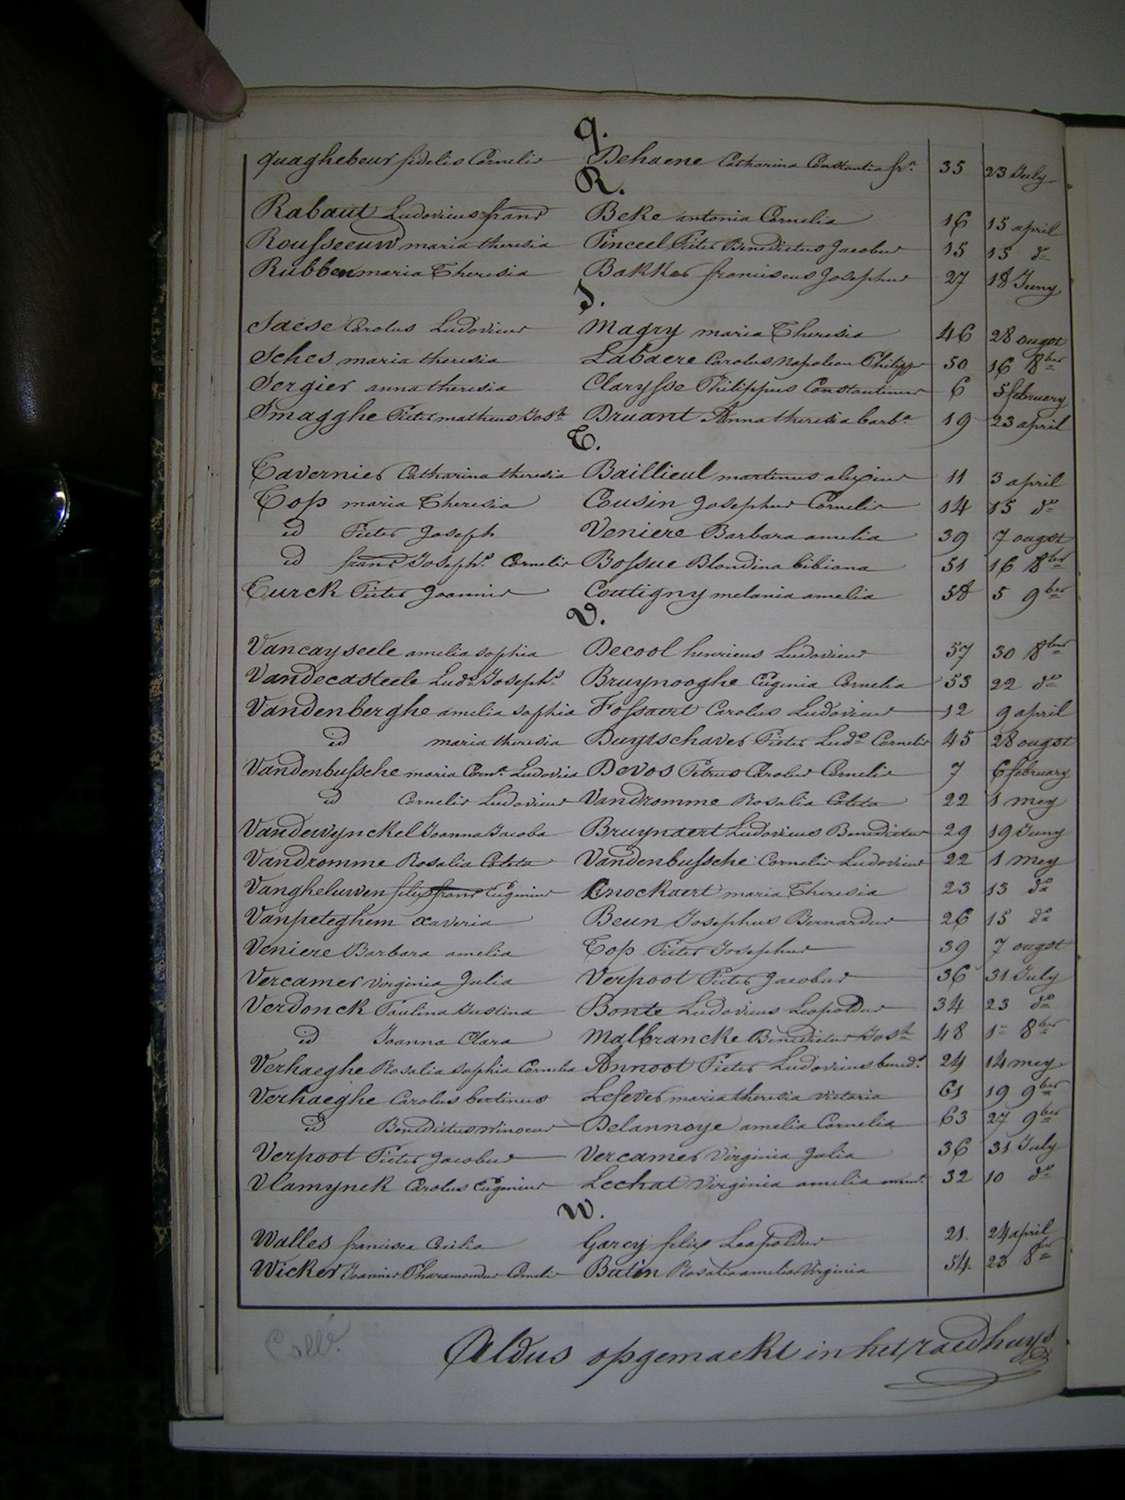 q.
quaghebeur fidelis Cornelis Dehaene Catharina Constantia fr.ᵃ 35 23 July
R.
Rabaut Ludovicus franˢ Beke antonia Cornelia 16 15 april
Rousseeuw maria theresia Pinceel Pieter Benedictus Jacobus 15 15 dᵒ
Rubben maria Theresia Bakker franciscus Josephus 27 18 Juny
S.
Saese Carolus Ludovicus Magry maria Theresia 46 28 ougst
Sches maria theresia Labaere Carolus Napoleon Philipp 50 16 8ber
Sergier anna theresia Clarysse Philippus Constantinus 6 5 february
Smagghe Pieter matheus Josʰ Bruant Anna theresia barbᵃ 19 23 april
T.
Tavernier Catharina theresia Baillieul martinus aloysius 11 3 april
Top maria Theresia Cousin Josephus Cornelis 14 15 dᵒ
id Pieter Joseph Veniere Barbara amelia 39 7 ougst
id franˢ Josephˢ Cornelis Bossue Blondina bibiana 51 16 8ber
Turck Pieter Joannis Coutigny melania amelia 58 5 9ber
V.
Vancayseele amelia sophia Decool henricus Ludovicus 57 30 8ber
Vandecasteele Ludˢ Josephˢ Bruynooghe Eugenia Cornelia 53 22 dᵒ
Vandenberghe amelia sophia Fossaert Carolus Ludovicus 12 9 april
id maria theresia Buytschaver Pieter Ludᵒ Cornelis 45 28 ougst
Vandenbussche maria Cornᵃ Ludovica Devos Petrus Carolus Cornelis 7 6 february
id Cornelis Ludovicus Vandromme Rosalia Coleta 22 1 mey
Vandewynckel Joanna Jacoba Bruynaert Ludovicus Benedictus 29 19 Juny
Vandromme Rosalia Coleta Vandenbussche Cornelis Ludovicus 22 1 mey
Vangheluwen Eugenius Cnockaert maria Theresia 23 13 dᵒ
Vanpeteghem xaveria Beun Josephus Bernardus 26 15 dᵒ
Veniere Barbara amelia Top Pieter Josephus 39 7 ougst
Vercamer Virginia Julia Verpoot Pieter Jacobus 36 31 July
Verdonck Paulina Justina Bonte Ludovicus Leopoldus 34 23 dᵒ
id Joanna Clara Malbrancke Benedictus Josʰ 48 1 8ber
Verhaeghe Rosalia sophia Cornelia Annoot Pieter Ludovicus benedˢ 24 14 mey
Verhaeghe Carolus bertinus Lefever maria theresia victoria 61 19 9ber
id Benedictus winocus Delannoye amelia Cornelia 63 27 9ber
Verpoot Pieter Jacobus Vercamer Virginia Julia 36 31 July
Vlamynck Carolus Eugenius Lechat Virginia amelia 32 10 dᵒ
W.
Walles francisca Cecilia Garcy felix Leopoldus 21. 24 april
Wicker Joannis Pharamondus Cornelis Batin Rosalia amelia Virginia 54 23 8ber
Coll.
Aldus opgemaekt in het raedhuys